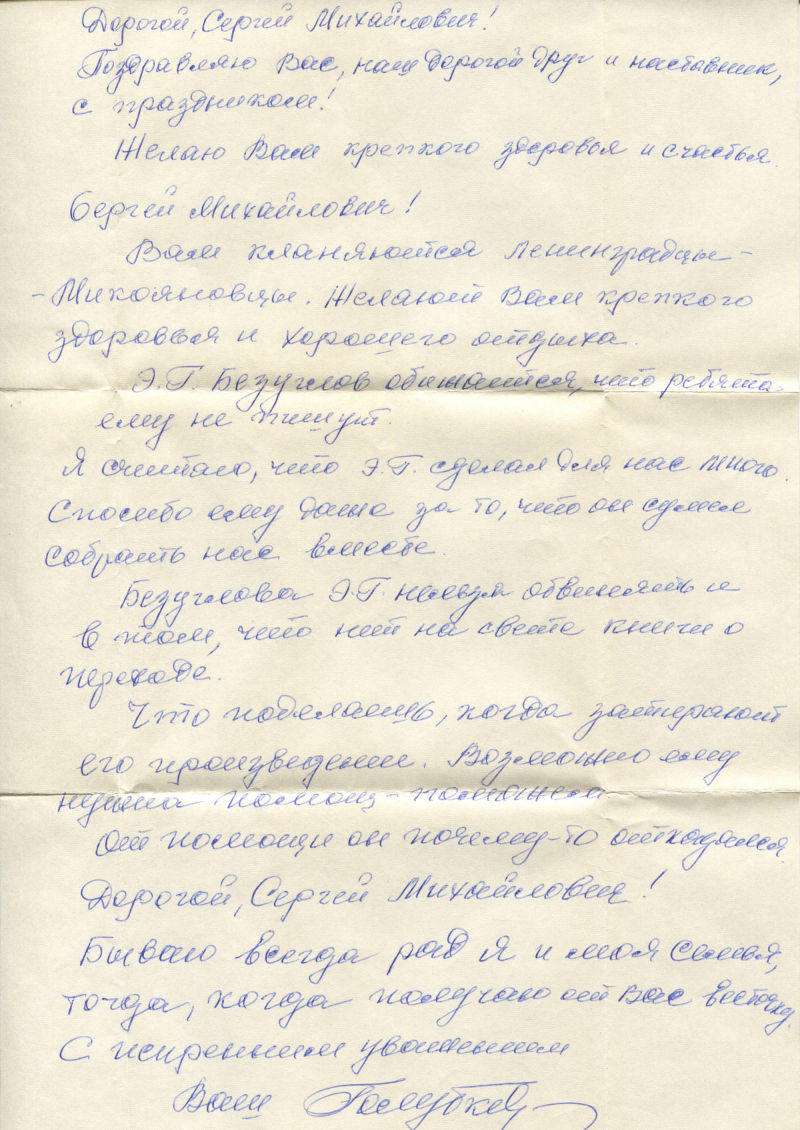 Дорогой, Сергей Михайлович!
Поздравляю Вас, наш дорогой друг и наставник,
с праздником!
Желаю Вам крепкого здоровья и счастья.
Сергей Михайлович!
Вам кланяются Ленинградцы-
-Микояновцы. Желают Вам крепкого
здоровья и хорошего отдыха.
Э.Г. Безуглов обижается, что ребята
ему не пишут.
Я считаю, что Э.Г. сделал для нас много.
Спасибо ему даже за то, что он сумел
собрать нас вместе.
Безуглова Э.Г. нельзя обвинять и
в том, что нет на свете книги о
переходе.
Что поделаешь, когда затирают
его произведении. Возможно ему
нужна помощь - поможем
От помощи он почему-то отказался.
Дорогой, Сергей Михайлович!
Бываю всегда рад я и моя семья,
тогда, когда получаю от Вас весточку.
С искренним уважением
Ваш